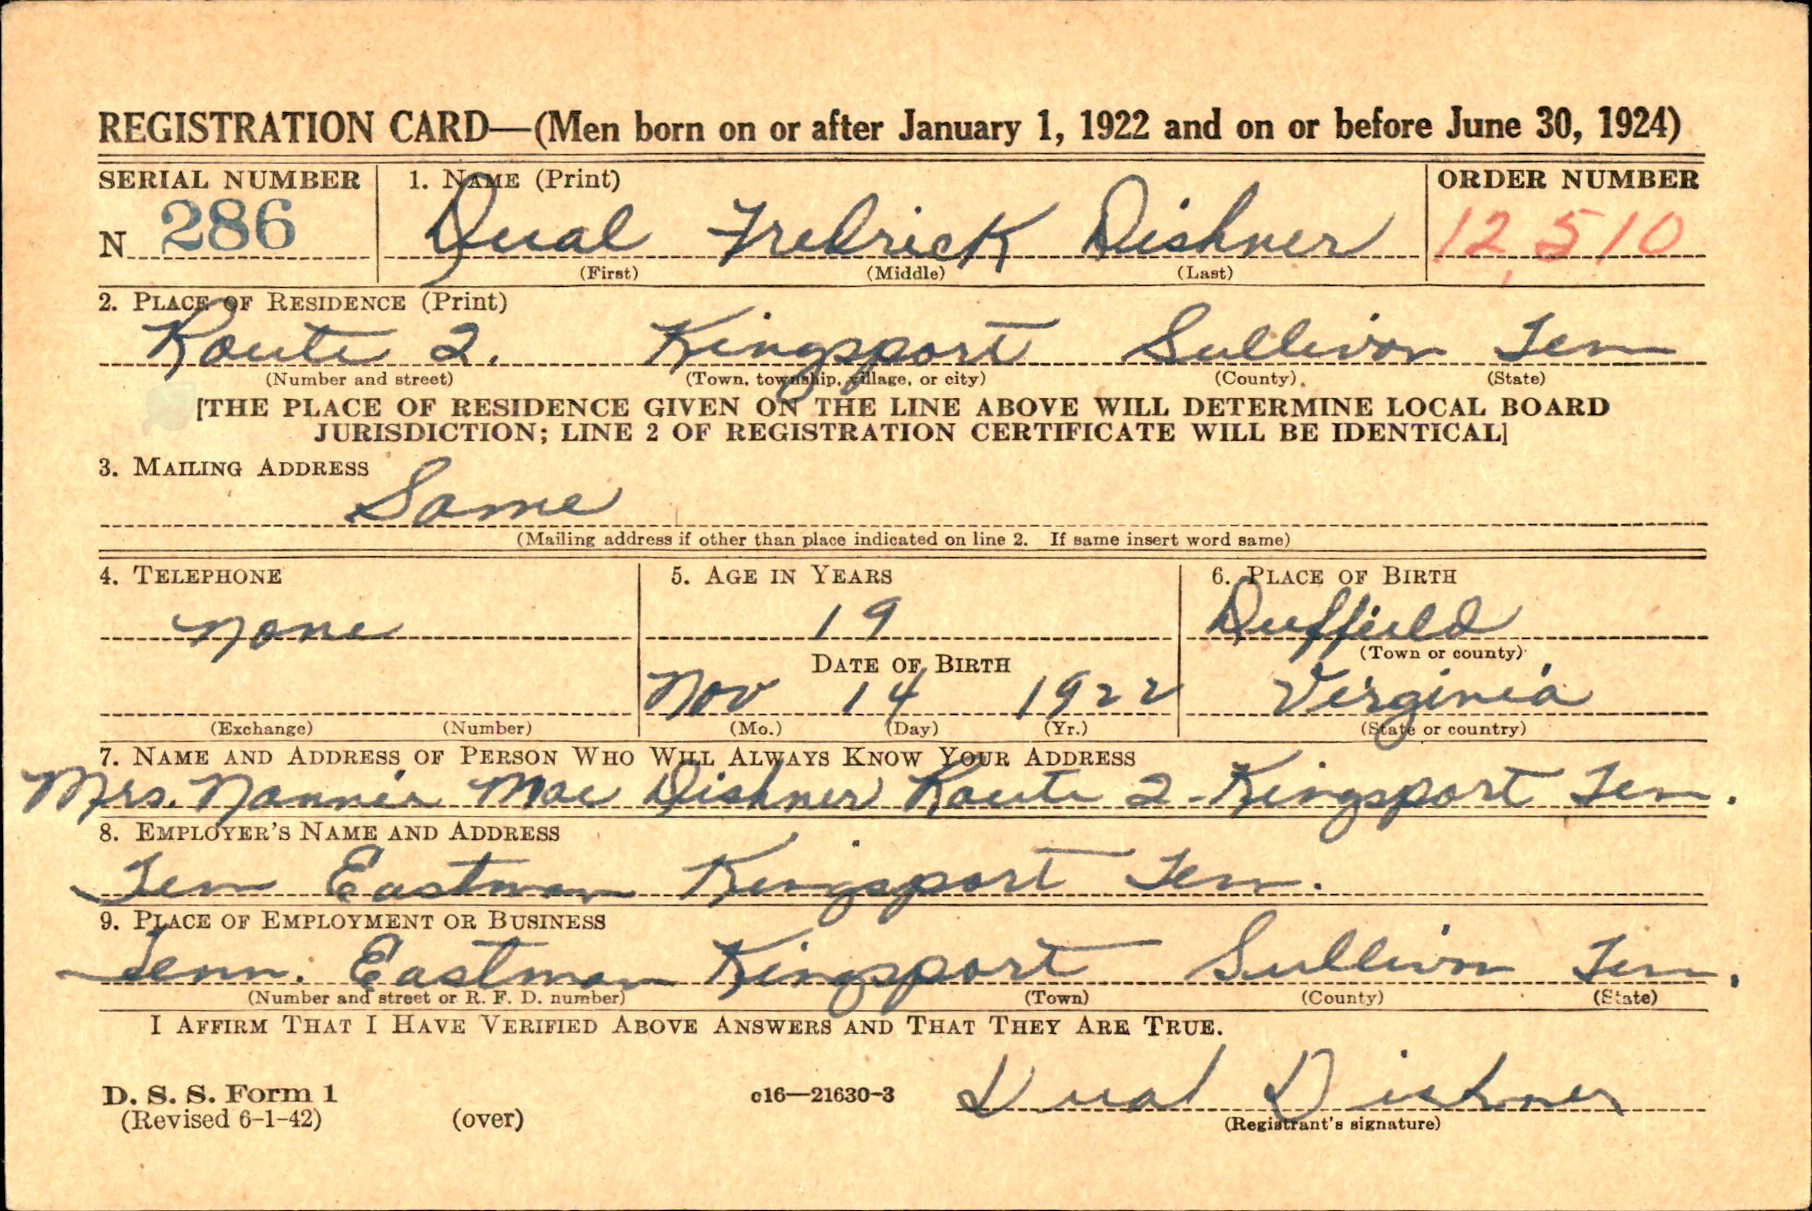 REGISTRATION CARD—(Men born on or after January 1, 1922 and on or before June 30, 1924)
SERIAL NUMBER 1. NAME (Print) ORDER NUMBER
N 286 Dual Fredrick Dishner 12,510
(First) (Middle) (Last)
2. PLACE OF RESIDENCE (Print)
Route 2. Kingsport Sullivan Ten
(Number and street) (Town, township, village, or city) (County) (State)
[THE PLACE OF RESIDENCE GIVEN ON THE LINE ABOVE WILL DETERMINE LOCAL BOARD
JURISDICTION; LINE 2 OF REGISTRATION CERTIFICATE WILL BE IDENTICAL]
3. MAILING ADDRESS
Same
(Mailing address if other than place indicated on line 2. If same insert word same)
4. TELEPHONE 5. AGE IN YEARS 6. PLACE OF BIRTH
none 19 Duffield
DATE OF BIRTH (Town or county)
Nov 14 1922 Virginia
(Exchange) (Number) (Mo.) (Day) (Yr.) (State or country)
7. NAME AND ADDRESS OF PERSON WHO WILL ALWAYS KNOW YOUR ADDRESS
Mrs. Nannie Mae Dishner Route 2 - Kingsport Ten.
8. EMPLOYER'S NAME AND ADDRESS
Ten Eastman Kingsport Ten.
9. PLACE OF EMPLOYMENT OR BUSINESS
Tenn. Eastman Kingsport Sullivan Ten.
(Number and street or R. F. D. number) (Town) (County) (State)
I AFFIRM THAT I HAVE VERIFIED ABOVE ANSWERS AND THAT THEY ARE TRUE.
D. S. S. Form 1 c16—21630-3 Dual Dishner
(Revised 6-1-42) (over) (Registrant's signature)